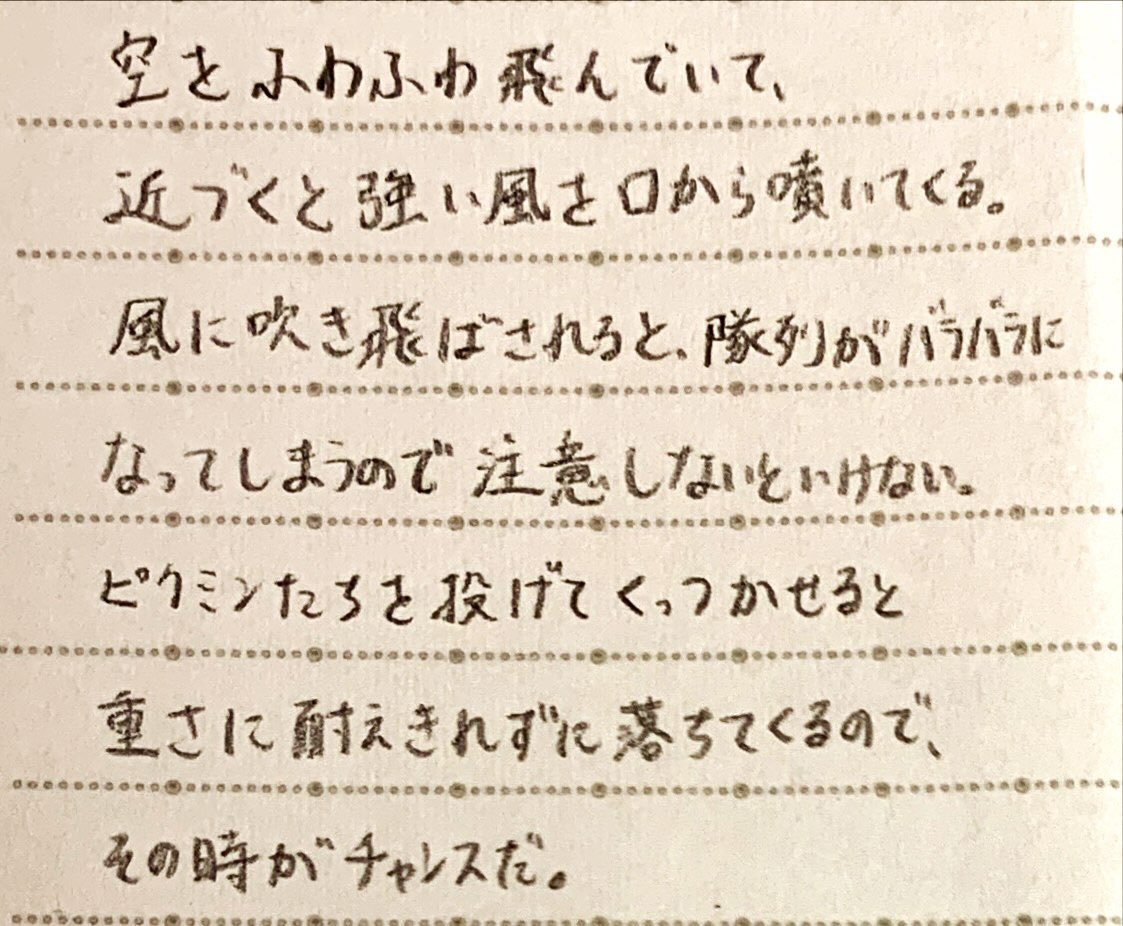 空をふわふわ飛んでいて、
近づくと強い風を口から噴いてくる。
風に吹き飛ばされると、隊列がバラバラに
なってしまうので注意しないといけない。
ピクミンたちを投げてくっつかせると
重さに耐えきれずに落ちてくるので、
その時がチャンスだ。